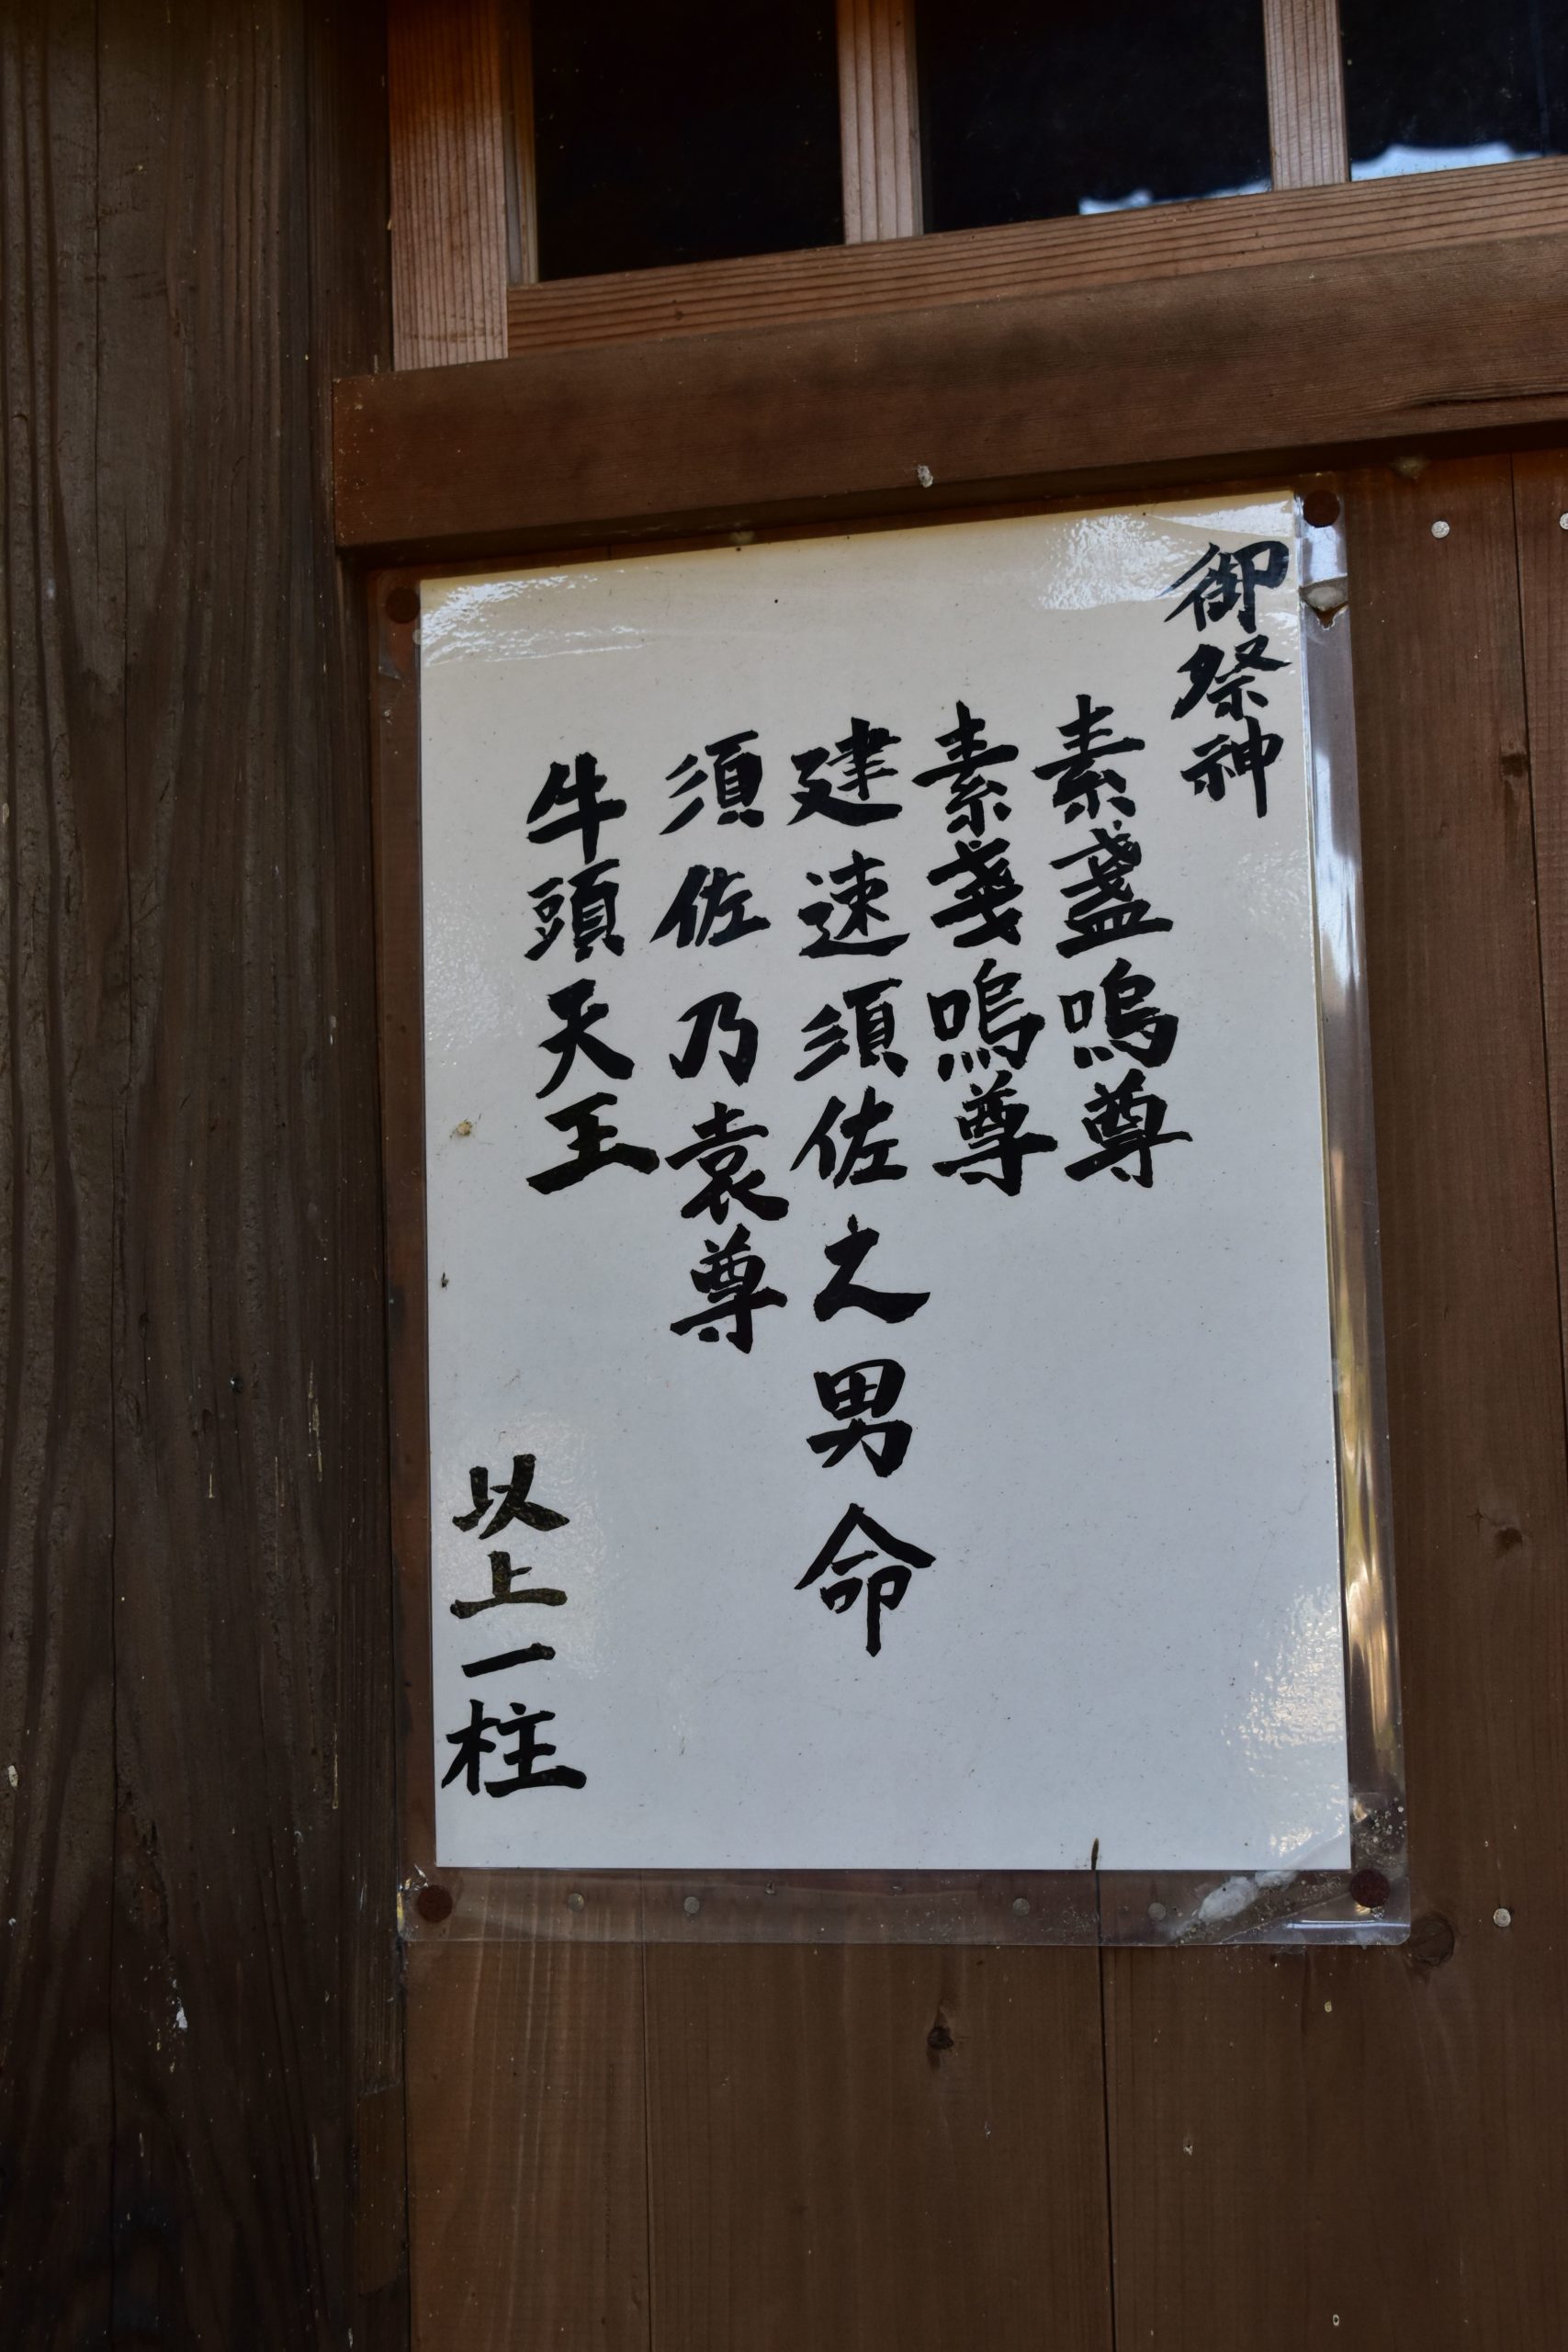 御祭神
素盞嗚尊
素戔嗚尊
建速須佐之男命
須佐乃袁尊
牛頭天王
以上一柱